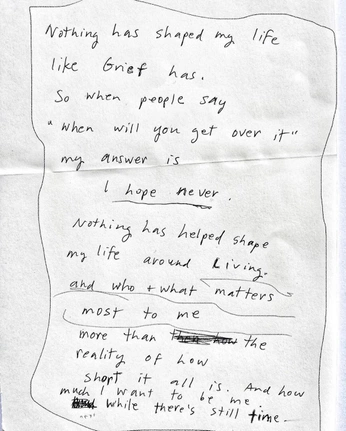 Nothing has shaped my life
like Grief has.
So when people say
"when will you get over it"
my answer is
I hope never.
Nothing has helped shape
my life around Living.
and who + what matters
most to me
more than the
reality of how
short it all is. And how
much I want to be me.
while there's still time.